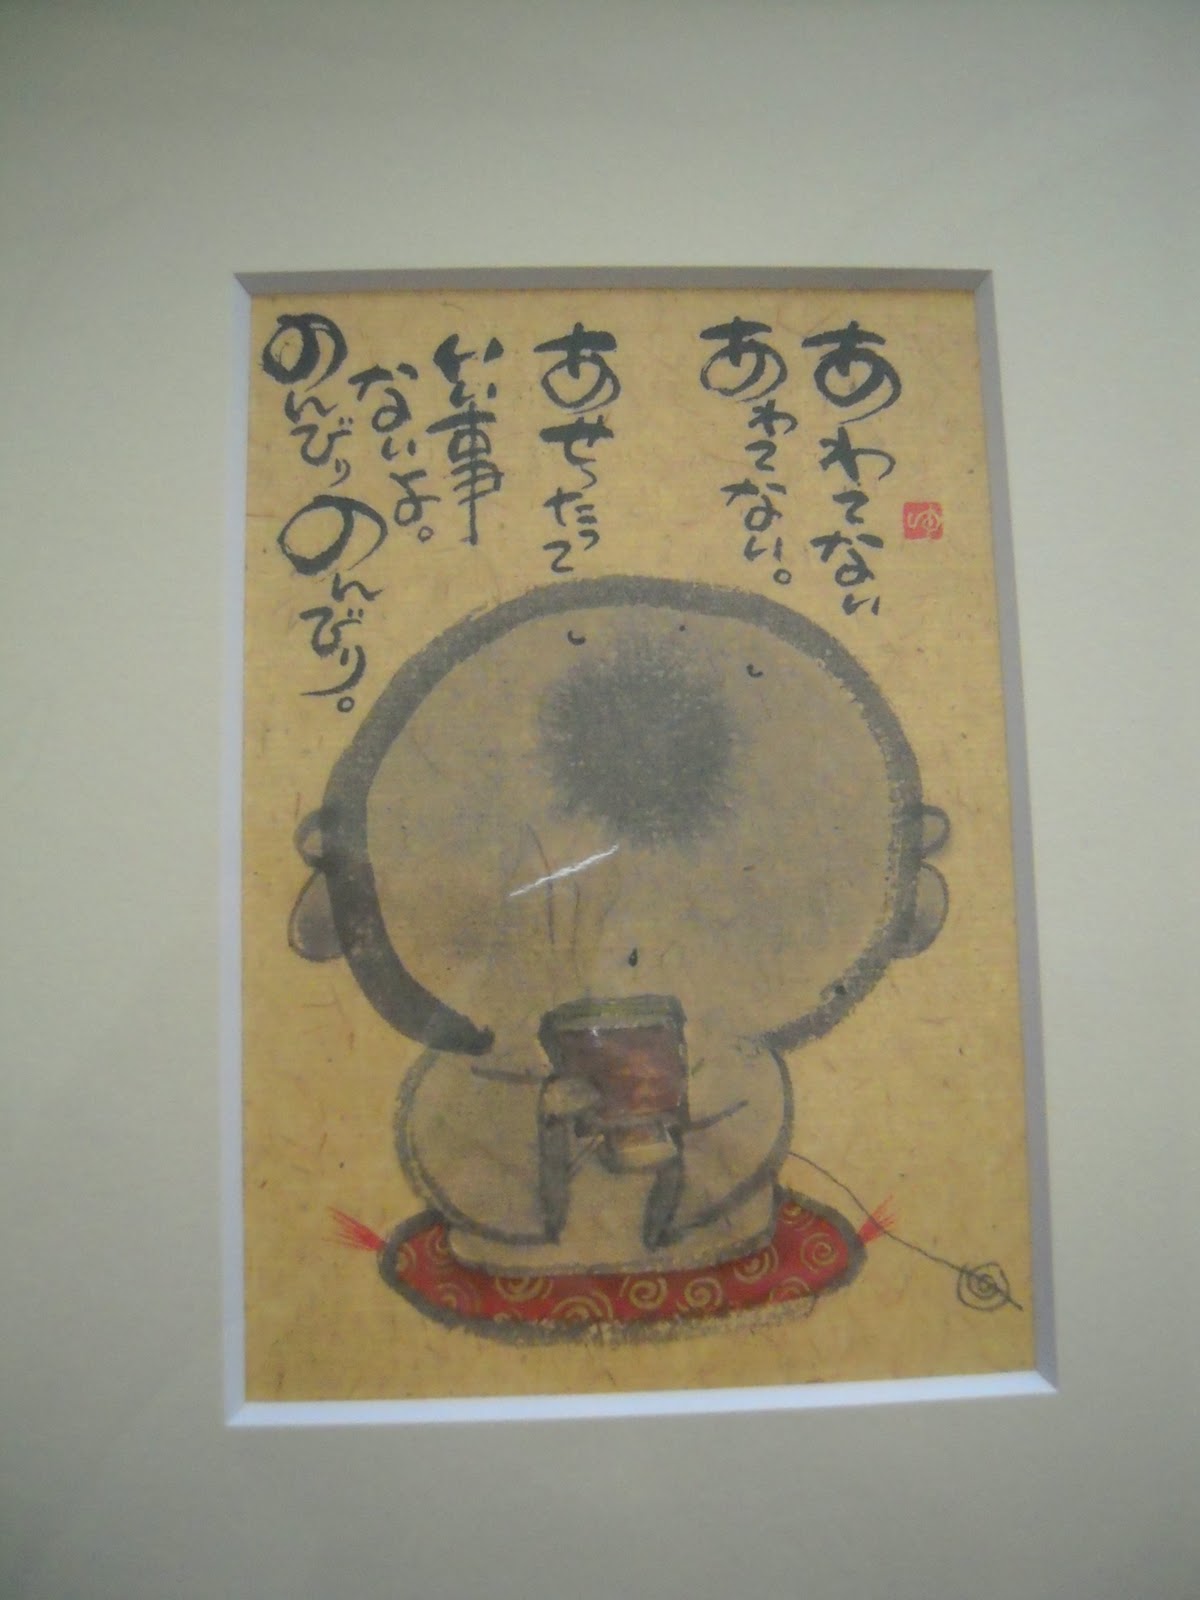 あわてない
あわてない。
あせったって
いい事
ないよ。
のんびりのんびり。
ゆ